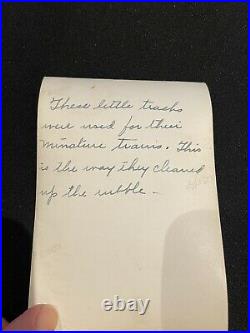 These little tracks
were used for their
minature trains. This
is the way they cleaned
up the rubble -